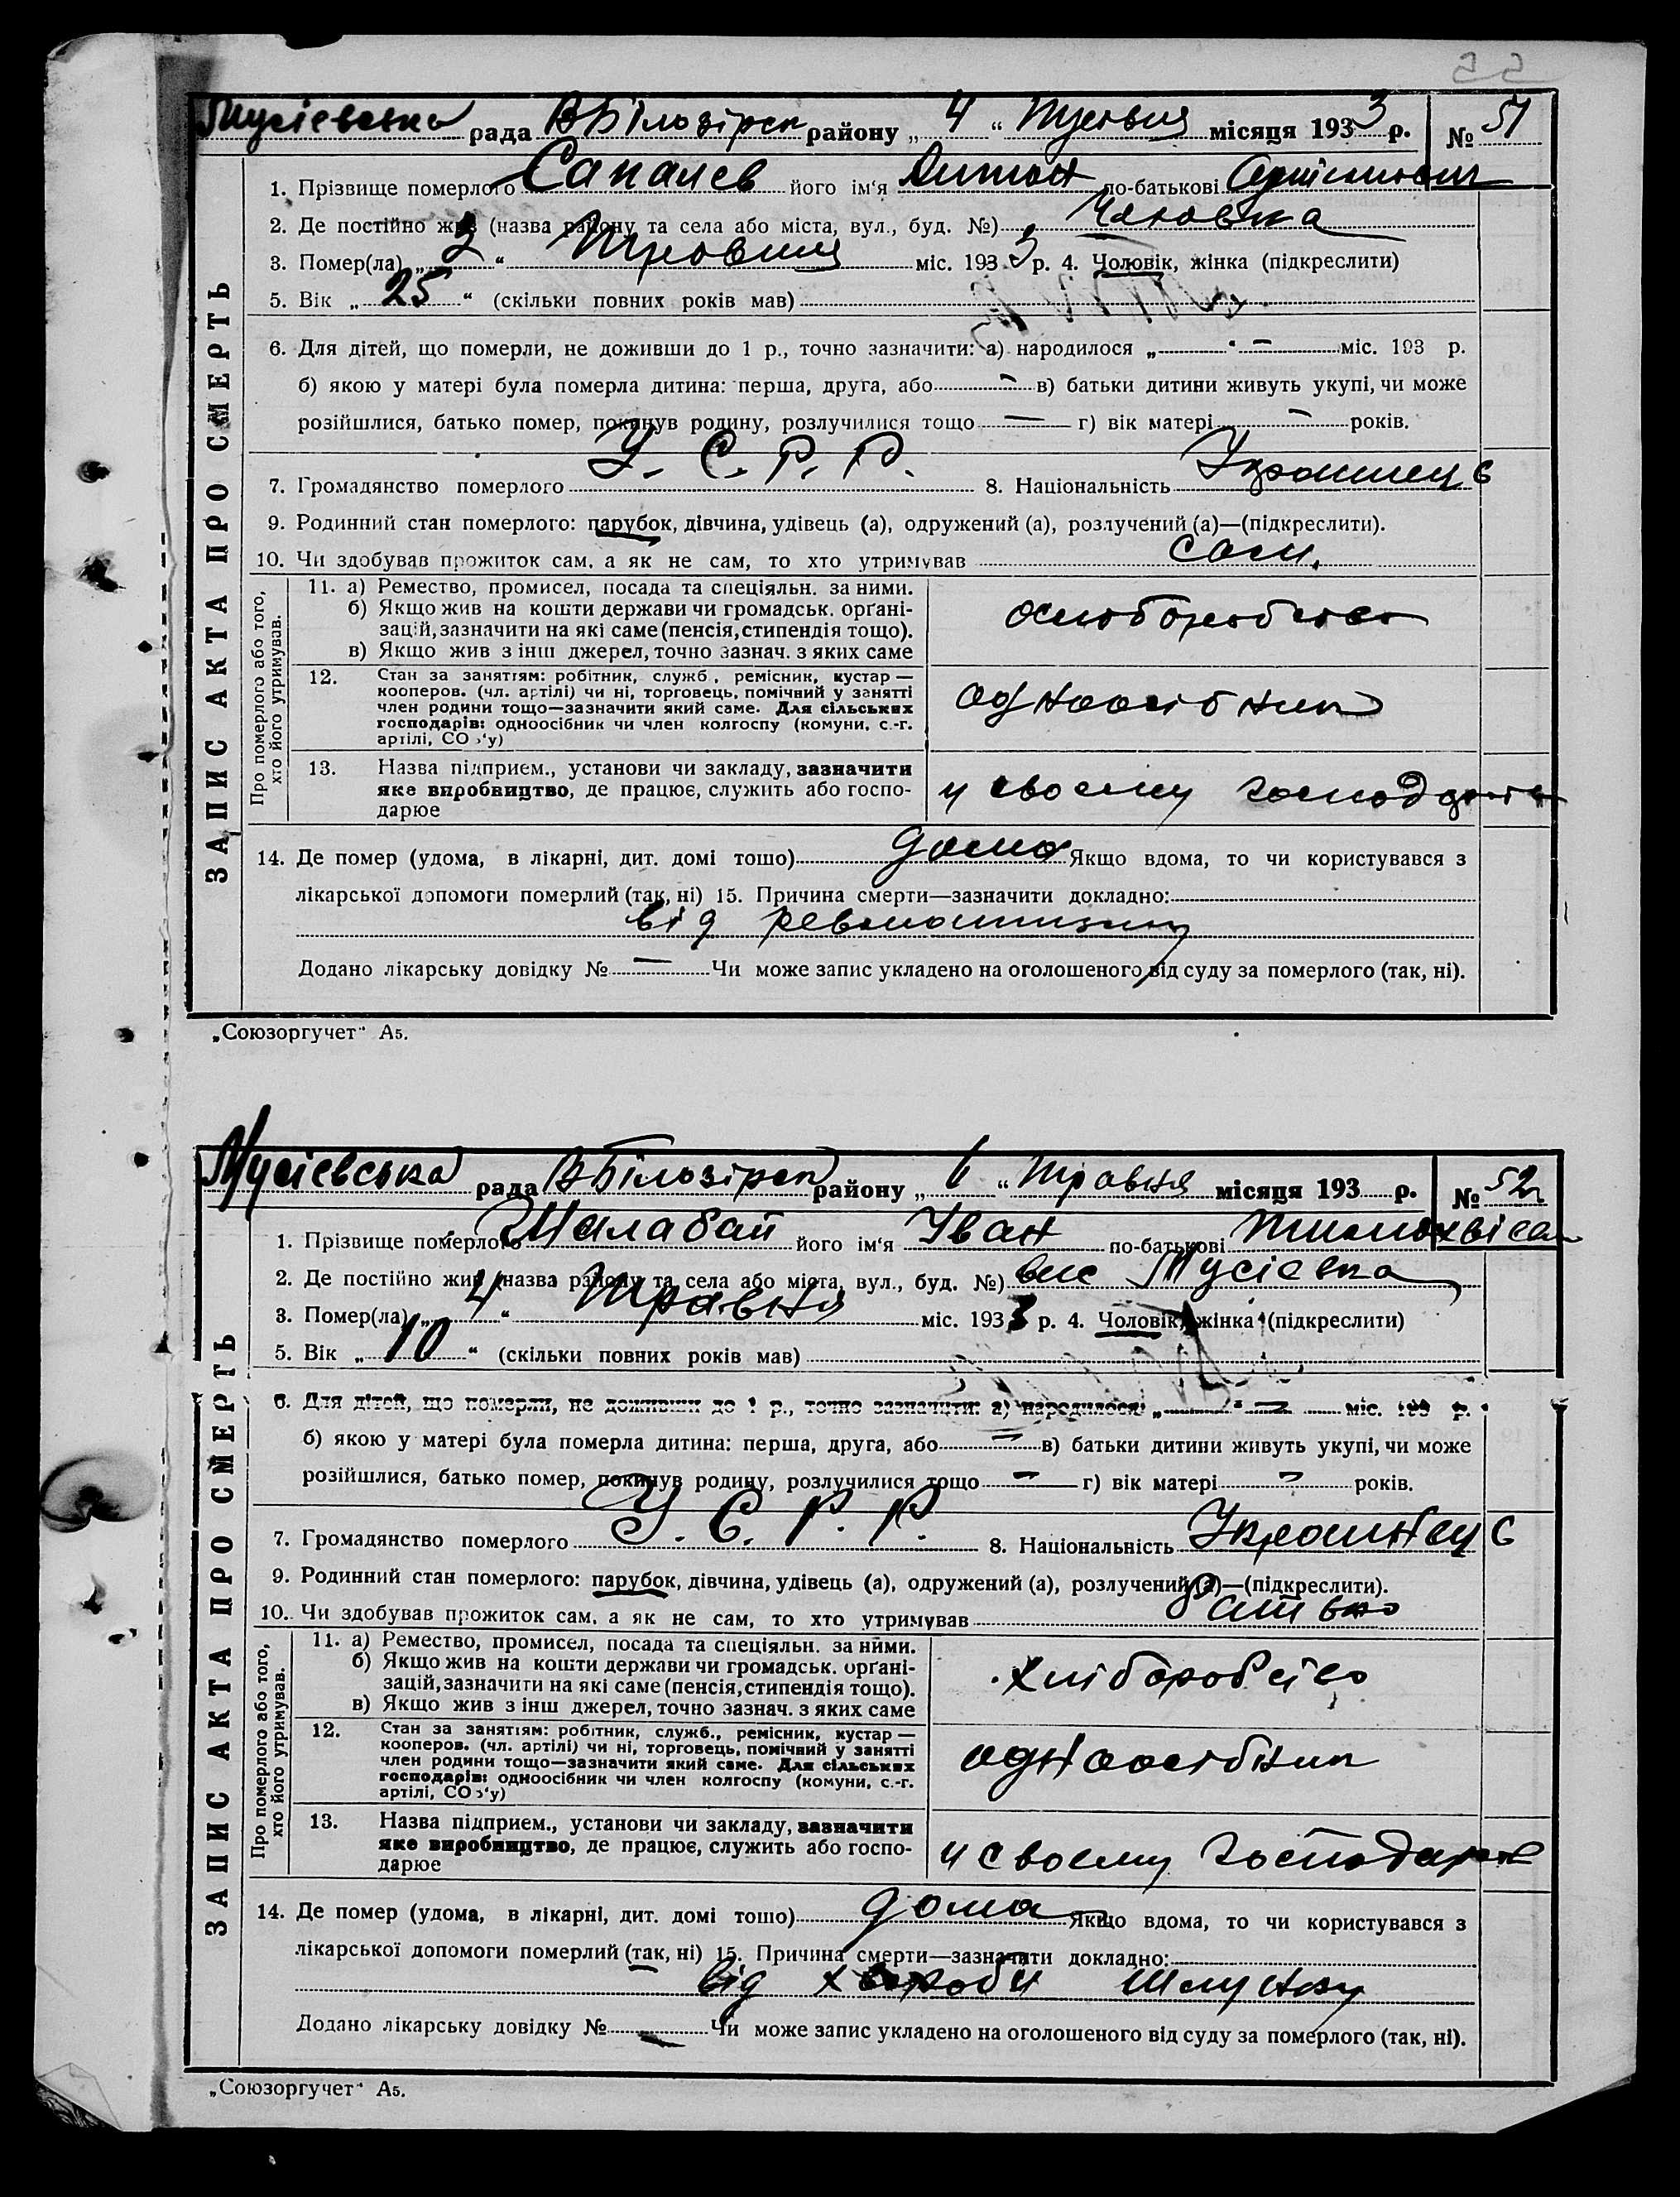 55
Мусієвська рада ВБілозірсп району „ 4 “ Травня місяця 1933 р. № 51
ЗАПИС АКТА ПРО СМЕРТЬ
1. Прізвище померлого Сапалев його ім‘я Антон по-батькові
2. Де постійно жив (назва району та села або міста, вул., буд. №)
3. Помер(ла) „ 3 “ Травня міс. 1933 р. 4. Чоловік, жінка (підкреслити)
5. Вік „ 25 “ (скільки повних років мав)
6. Для дітей, що померли, не доживши до 1 р., точно зазначити: а) народилося „ “ — міс. 193 р.
б) якою у матері була померла дитина: перша, друга, або — в) батьки дитини живуть укупі, чи може
розійшлися, батько помер, покинув родину, розлучилися тощо — г) вік матері — років.
7. Громадянство померлого У. С. Р. Р. 8. Національність Украинец 6
9. Родинний стан померлого: парубок, дівчина, удівець (а), одружений (а), розлучений (а)—(підкреслити).
10. Чи здобував прожиток сам, а як не сам, то хто утримував сам.
Про померлого або того, хто його утримував.
11. а) Ремество, промисел, посада та спеціяльн. за ними.
б) Якщо жив на кошти держави чи громадськ. орґані-
зацій, зазначити на які саме (пенсія, стипендія тощо).
в) Якщо жив з інш джерел, точно зазнач. з яких саме
12. Стан за заняттям: робітник, служб., ремісник, кустар —
кооперов. (чл. артілі) чи ні, торговець, помічний у занятті
член родини тощо—зазначити який саме. Для сільських
господарів: одноосібник чи член колгоспу (комуни, с.-г.
артілі, СО з‘у)
одноосібник
13. Назва підприєм., установи чи закладу, зазначити
яке виробництво, де працює, служить або госпо-
дарює
у своєму
14. Де помер (удома, в лікарні, дит. домі тощо) дома Якщо вдома, то чи користувався з
лікарської допомоги померлий (так, ні) 15. Причина смерти—зазначити докладно:
від ревматизму
Додано лікарську довідку № — Чи може запис укладено на оголошеного від суду за померлого (так, ні).
„Союзоргучет“ А5.
Мусієвська рада ВБілозірсп району „ 6 “ Травня місяця 193 р. № 52
ЗАПИС АКТА ПРО СМЕРТЬ
1. Прізвище померлого Шалабай його ім‘я Іван по-батькові
2. Де постійно жив (назва району та села або міста, вул., буд. №) Мусієвка
3. Помер(ла) „ 4 “ Травня міс. 1933 р. 4. Чоловік, жінка (підкреслити)
5. Вік „ 10 “ (скільки повних років мав)
6. Для дітей, що померли, не доживши до 1 р., точно зазначити: а) народилося „ “ — міс. 193 р.
б) якою у матері була померла дитина: перша, друга, або — в) батьки дитини живуть укупі, чи може
розійшлися, батько помер, покинув родину, розлучилися тощо — г) вік матері — років.
7. Громадянство померлого У. С. Р. Р. 8. Національність Украинец 6
9. Родинний стан померлого: парубок, дівчина, удівець (а), одружений (а), розлучений (а)—(підкреслити).
10. Чи здобував прожиток сам, а як не сам, то хто утримував батько
Про померлого або того, хто його утримував.
11. а) Ремество, промисел, посада та спеціяльн. за ними.
б) Якщо жив на кошти держави чи громадськ. орґані-
зацій, зазначити на які саме (пенсія, стипендія тощо).
в) Якщо жив з інш джерел, точно зазнач. з яких саме
хліборобство
12. Стан за заняттям: робітник, служб., ремісник, кустар —
кооперов. (чл. артілі) чи ні, торговець, помічний у занятті
член родини тощо—зазначити який саме. Для сільських
господарів: одноосібник чи член колгоспу (комуни, с.-г.
артілі, СО з‘у)
одноосібник
13. Назва підприєм., установи чи закладу, зазначити
яке виробництво, де працює, служить або госпо-
дарює
у своєму
14. Де помер (удома, в лікарні, дит. домі тощо) дома Якщо вдома, то чи користувався з
лікарської допомоги померлий (так, ні) 15. Причина смерти—зазначити докладно:
від хвороби шлунку
Додано лікарську довідку № — Чи може запис укладено на оголошеного від суду за померлого (так, ні).
„Союзоргучет“ А5.